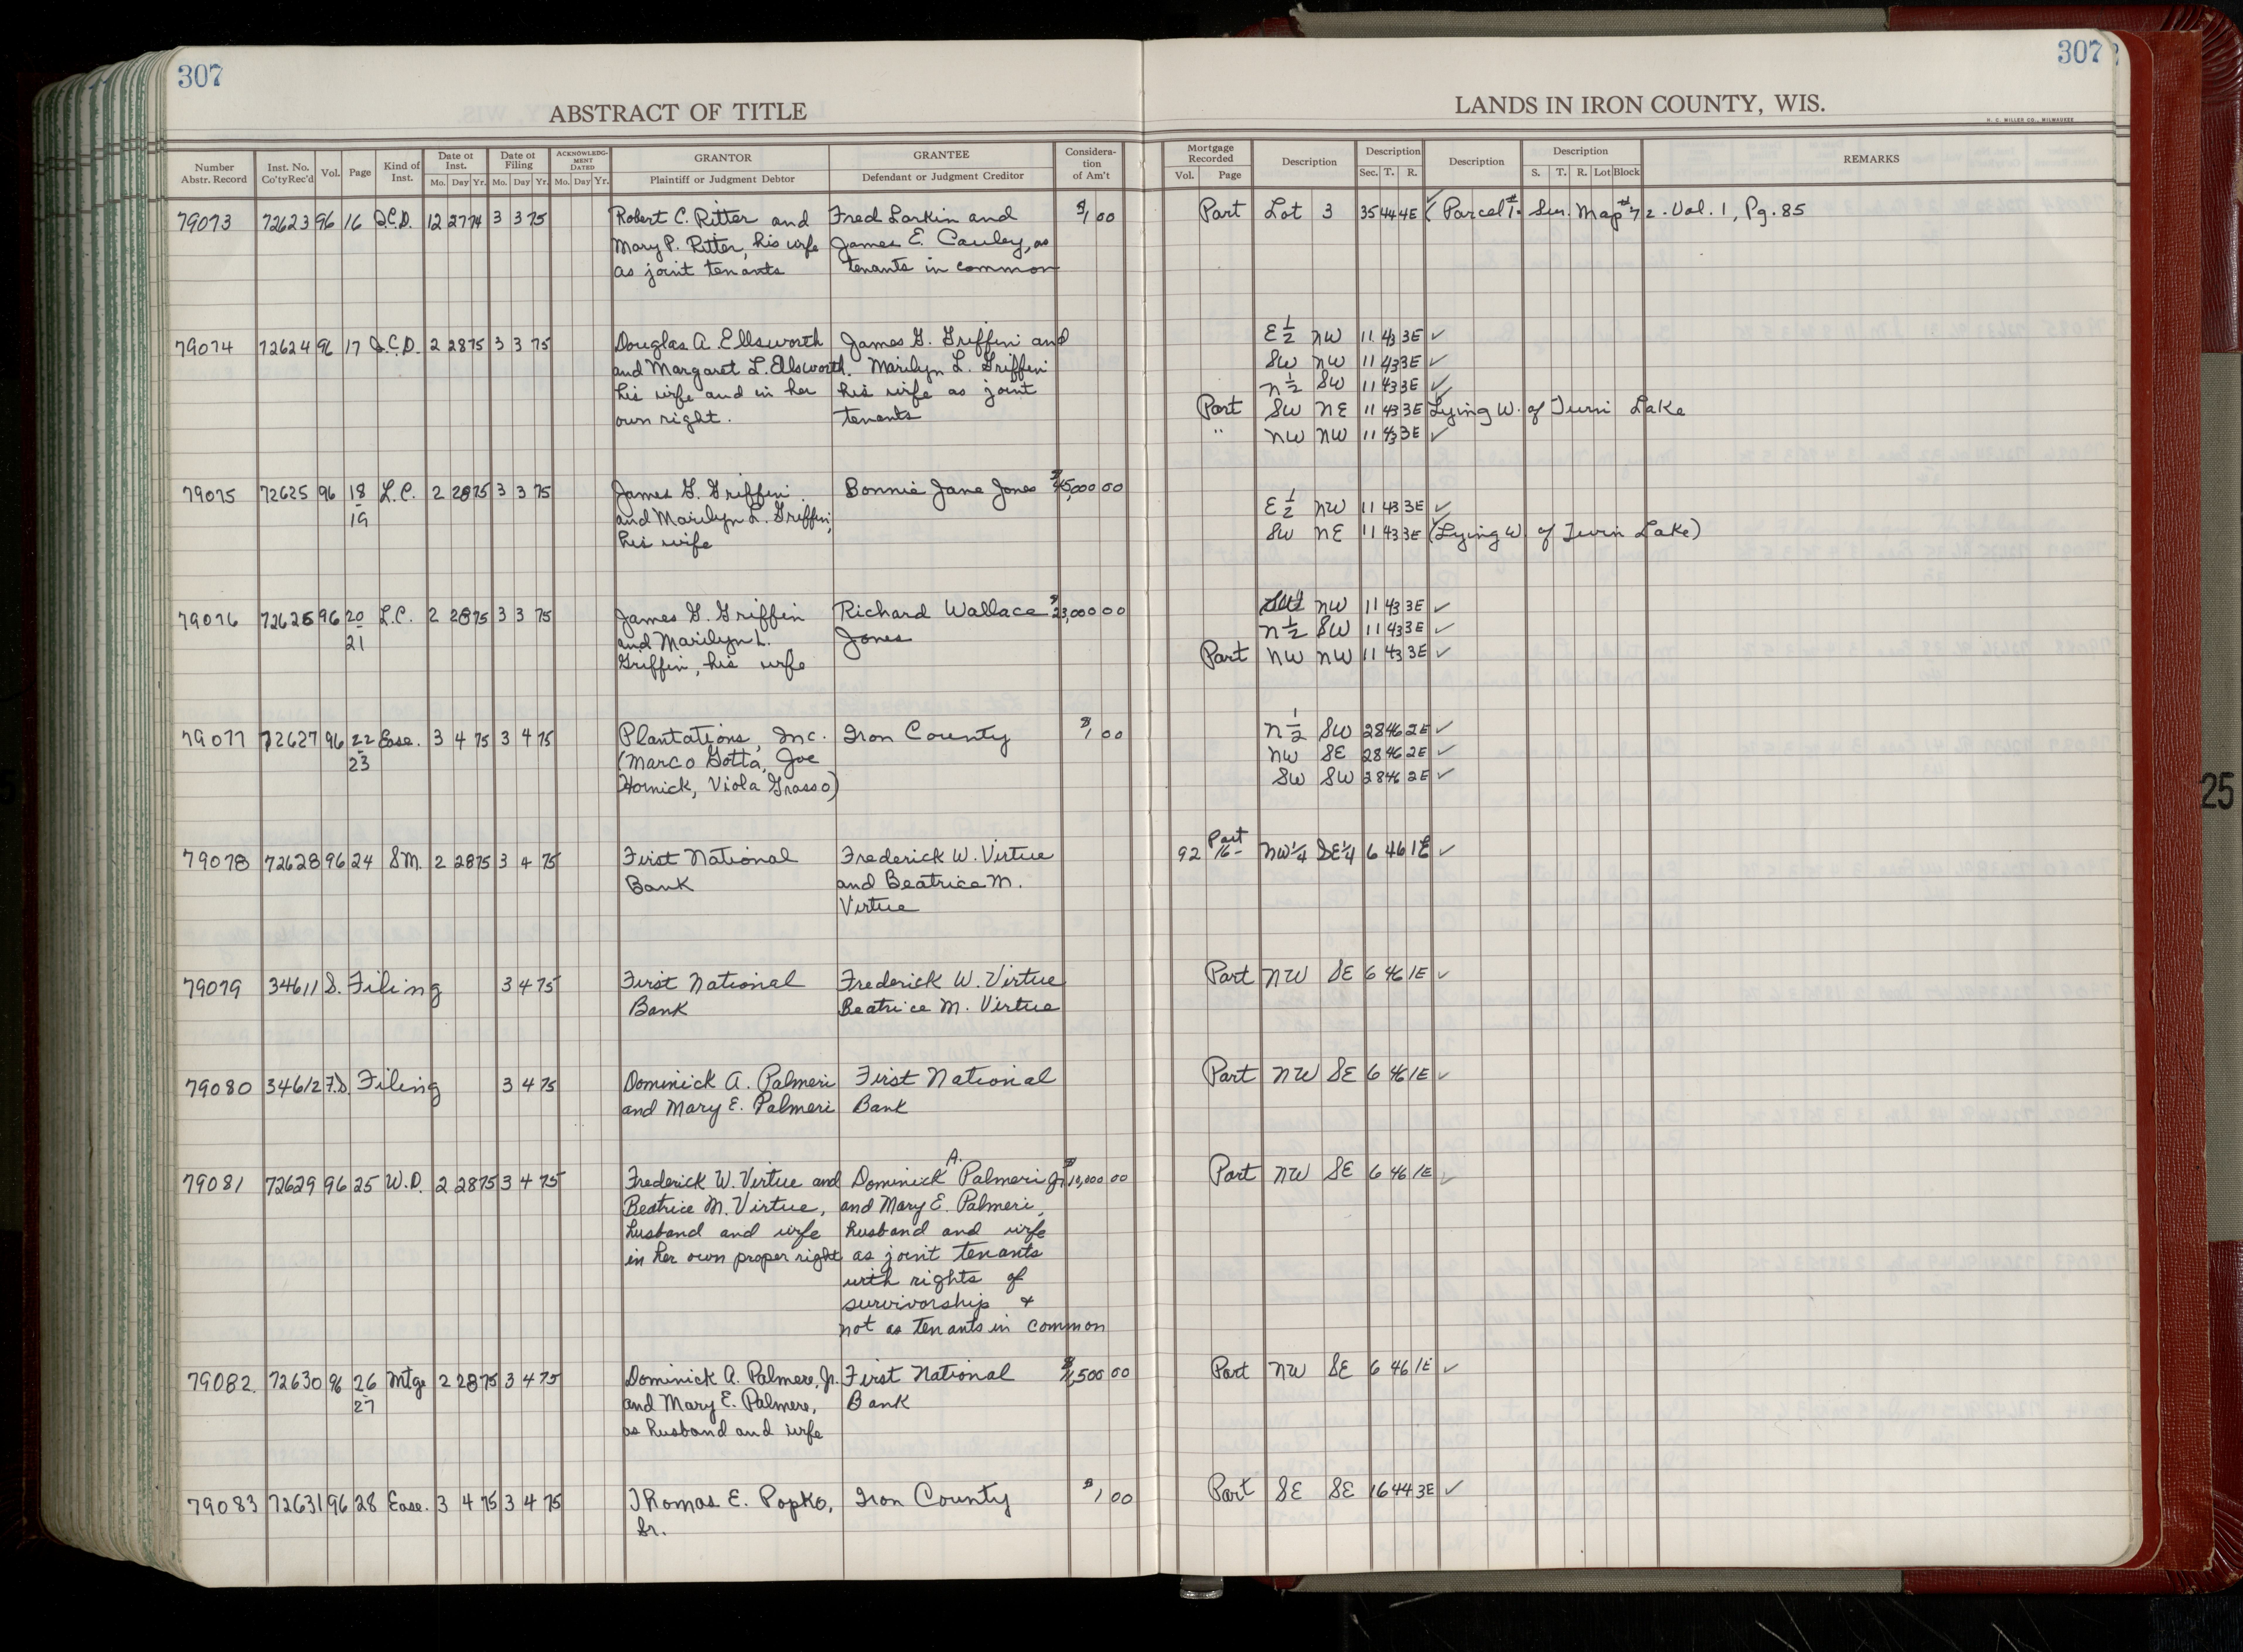 307
307
ABSTRACT OF TITLE
LANDS IN IRON COUNTY, WIS.
H. C. MILLER CO., MILWAUKEE
Number Abstr. Record | Inst. No. Co'ty Rec'd | Vol. | Page | Kind of Inst. | Date of Inst. Mo. Day Yr. | Date of Filing Mo. Day Yr. | ACKNOWLEDGMENT DATED Mo. Day Yr. | GRANTOR Plaintiff or Judgment Debtor | GRANTEE Defendant or Judgment Creditor | Consideration of Am't | Mortgage Recorded Vol. Page | Description | Description Sec. T. R. | Description | Description S. T. R. Lot Block | REMARKS
79073 72623 96 16 Q.C.D. 12 27 74 3 3 75 Robert C. Ritter and Fred Larkin and $1 00 Part Lot 3 35 44 4E ✓ (Parcel #1. Sur. Map #72. Vol. 1, Pg. 85
Mary P. Ritter, his wife James E. Cauley, as
as joint tenants tenants in common
79074 72624 96 17 Q.C.D. 2 28 75 3 3 75 Douglas A. Ellsworth James G. Griffin and E 1/2 NW 11 43 3E ✓
and Margaret L. Ellsworth. Marilyn L. Griffin SW NW 11 43 3E ✓
his wife and in her his wife as joint N 1/2 SW 11 43 3E ✓
own right. tenants Part SW NE 11 43 3E Lying W. of Twin Lake
" NW NW 11 43 3E ✓
79075 72625 96 18-19 L.C. 2 28 75 3 3 75 James G. Griffin Bonnie Jane Jones 00 E 1/2 NW 11 43 3E ✓
and Marilyn L. Griffin, SW NE 11 43 3E (Lying W. of Twin Lake)
his wife
79076 72626 96 20-21 L.C. 2 28 75 3 3 75 James G. Griffin Richard Wallace $23,000 00 NW 11 43 3E ✓
and Marilyn L. Jones N 1/2 SW 11 43 3E ✓
Griffin, his wife Part NW NW 11 43 3E ✓
79077 72627 96 22-23 Ease. 3 4 75 3 4 75 Plantations, Inc. Iron County $1 00 N 1/2 SW 28 46 2E ✓
(Marco Gotta, Joe NW SE 28 46 2E ✓
Hornick, Viola Grasso) SW SW 28 46 2E ✓
79078 72628 96 24 SM. 2 28 75 3 4 75 First National Frederick W. Virtue 92 16- Part NW1/4 SE1/4 6 46 1E ✓
Bank and Beatrice M.
Virtue
79079 34611 S. Filing 3 4 75 First National Frederick W. Virtue Part NW SE 6 46 1E ✓
Bank Beatrice M. Virtue
79080 34612 F.S. Filing 3 4 75 Dominick A. Palmeri First National Part NW SE 6 46 1E ✓
and Mary E. Palmeri Bank
79081 72629 96 25 W.D. 2 28 75 3 4 75 Frederick W. Virtue and Dominick A. Palmeri Jr. $10,000 00 Part NW SE 6 46 1E ✓
Beatrice M. Virtue, and Mary E. Palmeri,
husband and wife husband and wife
in her own proper right as joint tenants
with rights of
survivorship &
not as tenants in common
79082. 72630 96 26-27 Mtge 2 28 75 3 4 75 Dominick A. Palmere, Jr. First National 500 00 Part NW SE 6 46 1E ✓
and Mary E. Palmere, Bank
as husband and wife
79083 72631 96 28 Ease. 3 4 75 3 4 75 Thomas E. Popko, Iron County $1 00 Part SE SE 16 44 3E ✓
Sr.
25